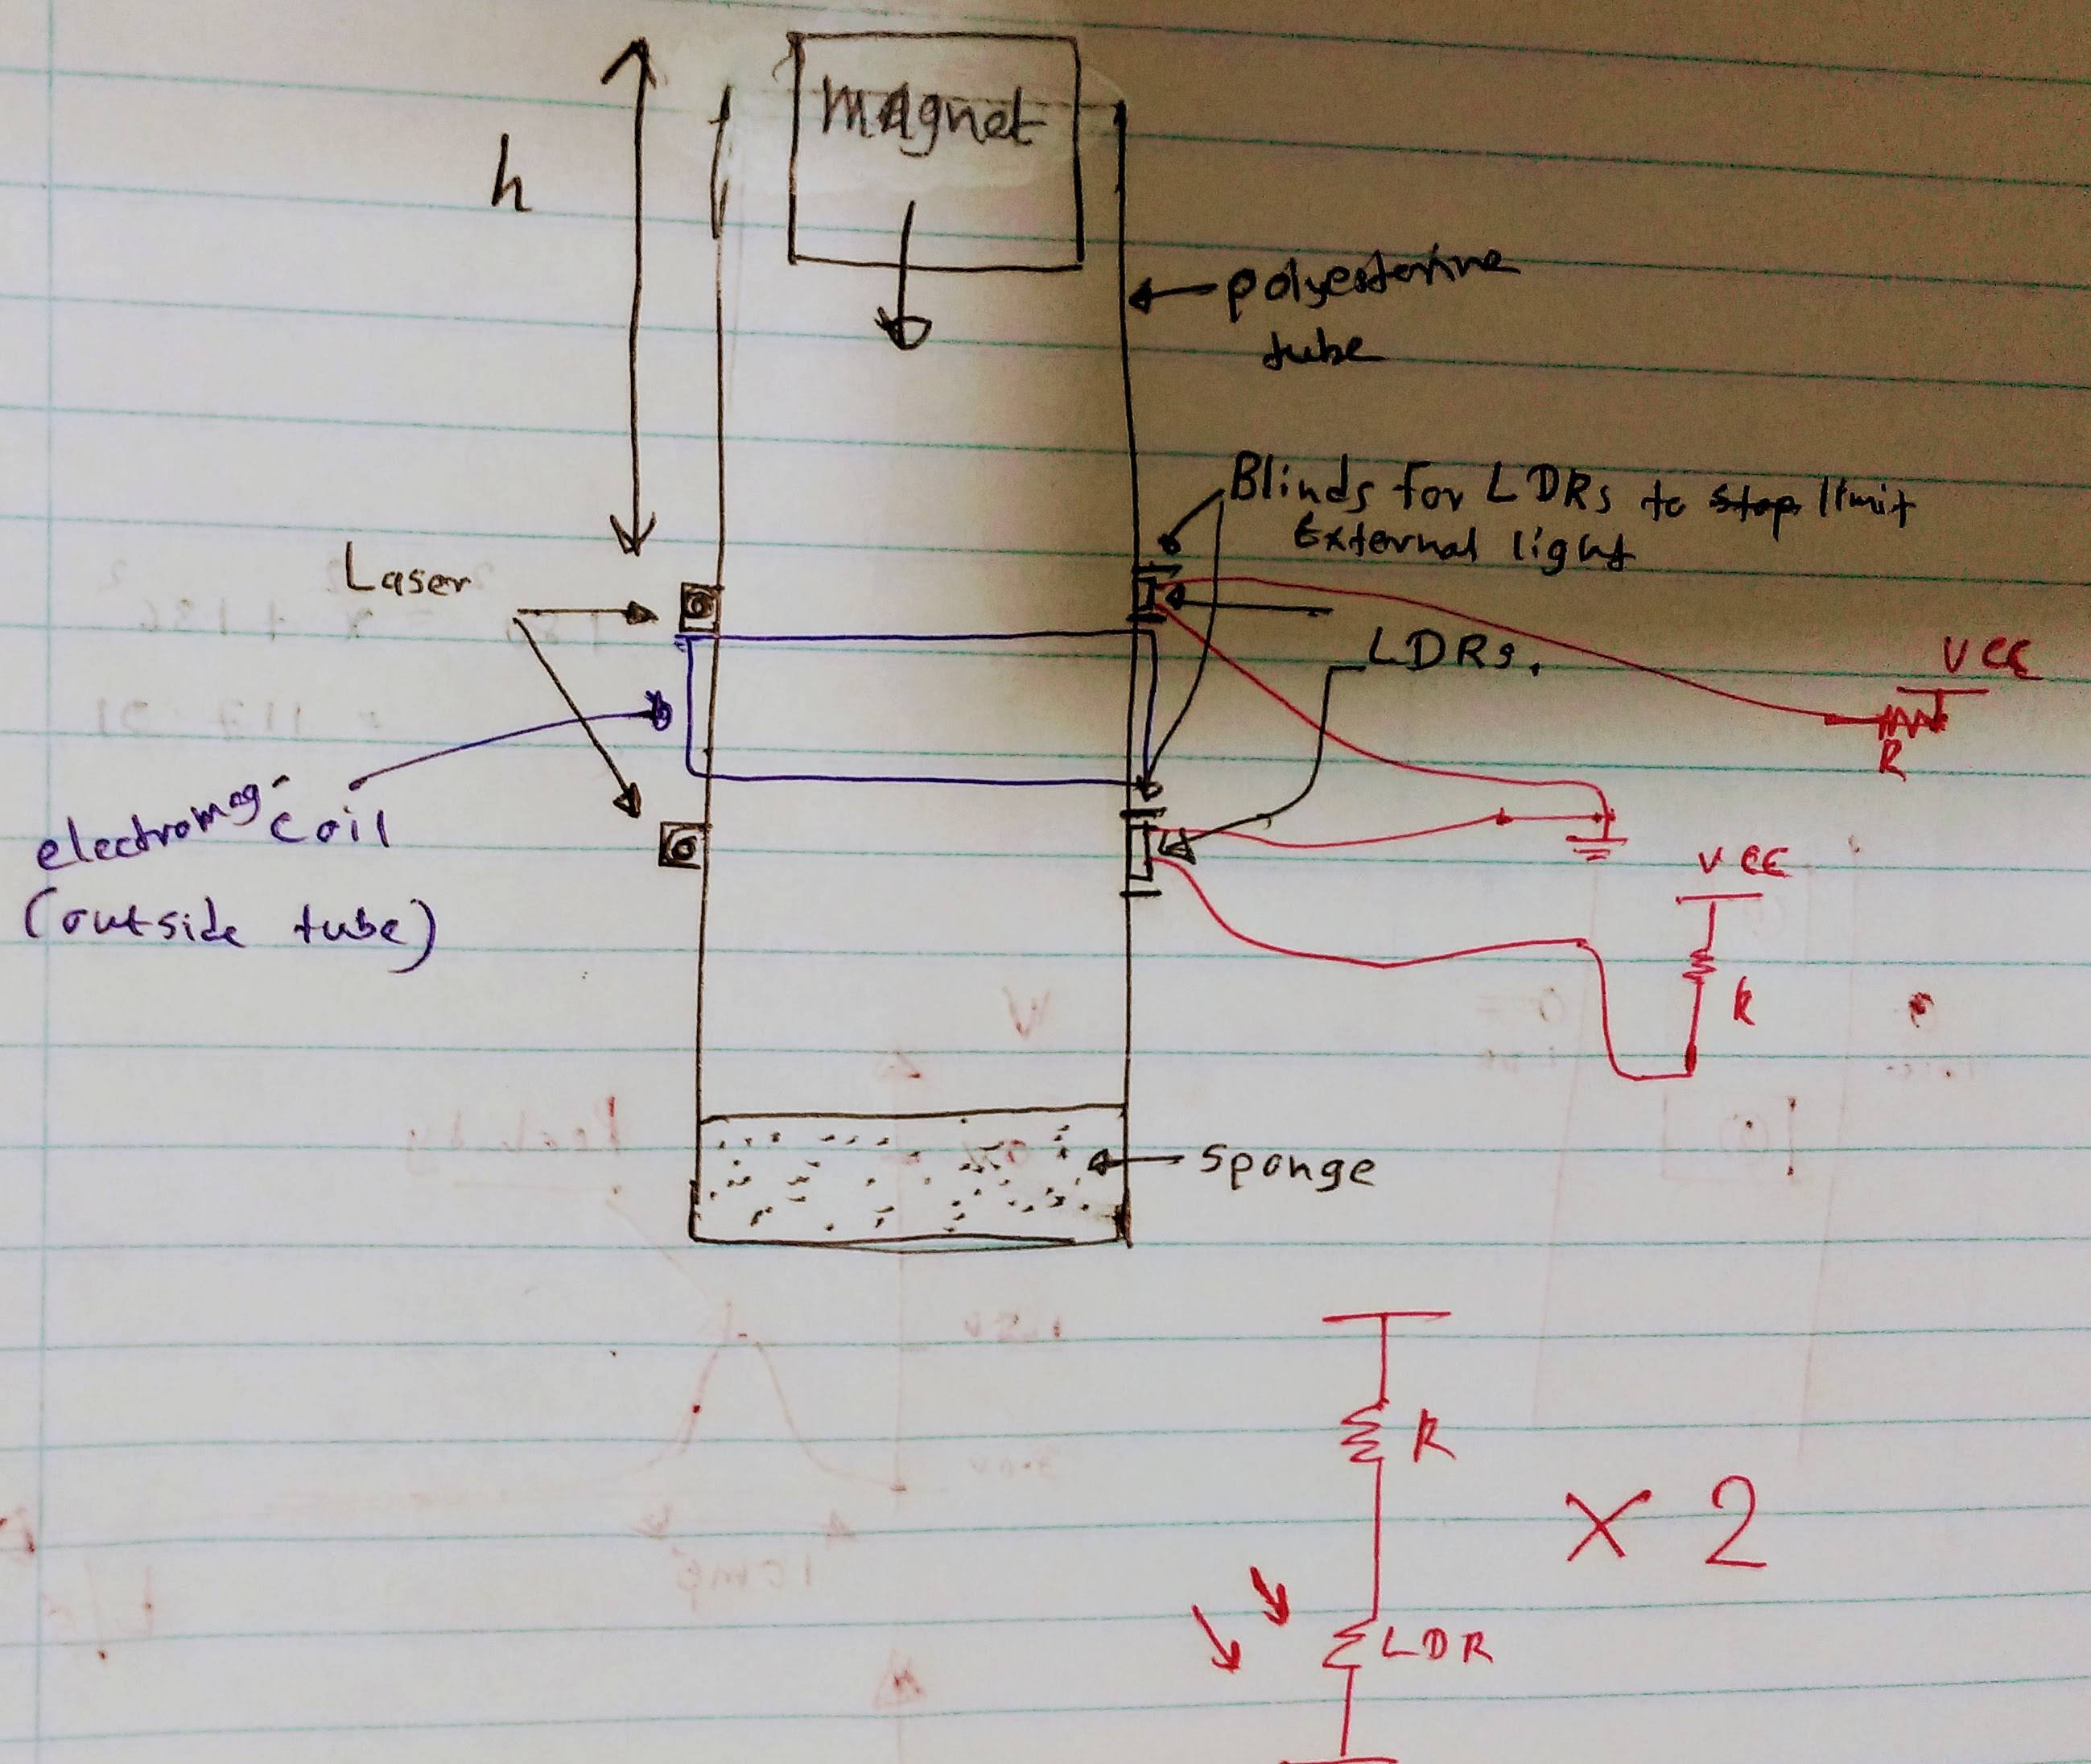 magnet
h
polyesterine
tube
Blinds for LDRs to stop limit
External light
Laser
LDRs.
VCC
R
electromag-
coil
(outside tube)
VCC
R
sponge
R
X 2
LDR